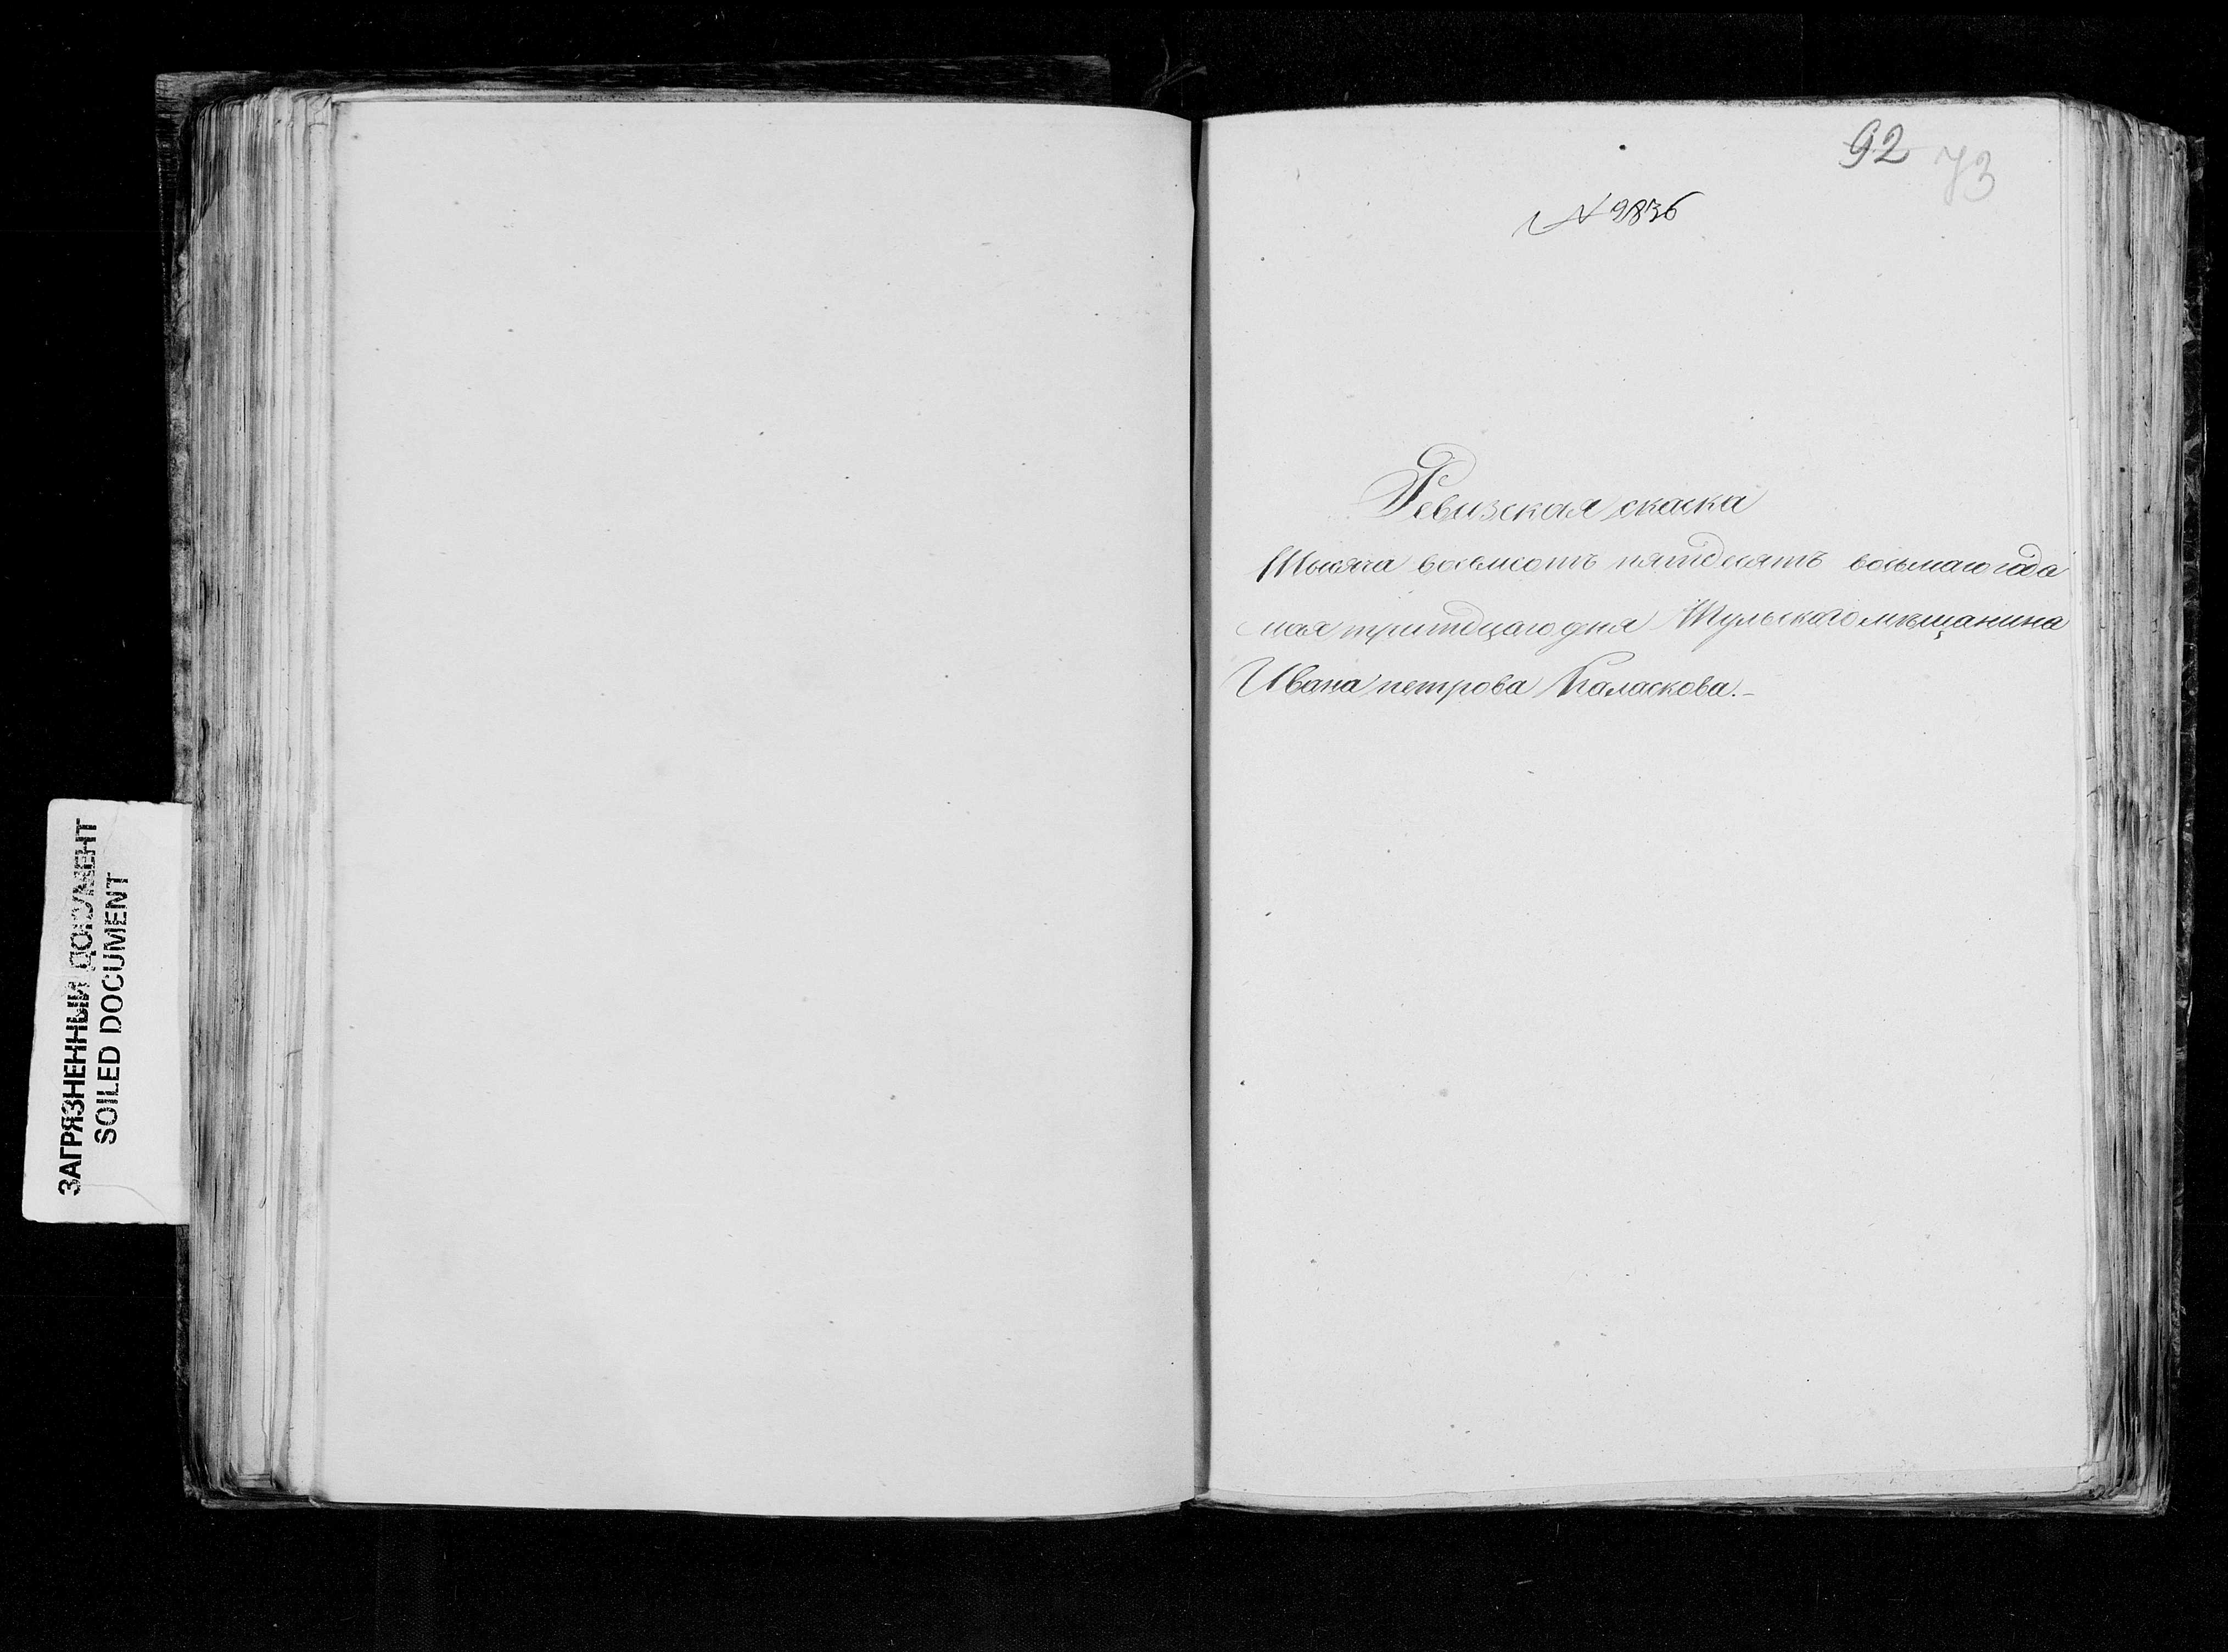 ЗАГРЯЗНЕННЫЙ ДОКУМЕНТ
SOILED DOCUMENT
92 73
№ 9836
Ревизская скаска
Тысяча восьмсотъ пятдесятъ восьмаго года
мая тритцаго дня Тульскаго мѣщанина
Ивана петрова Каласкова.-